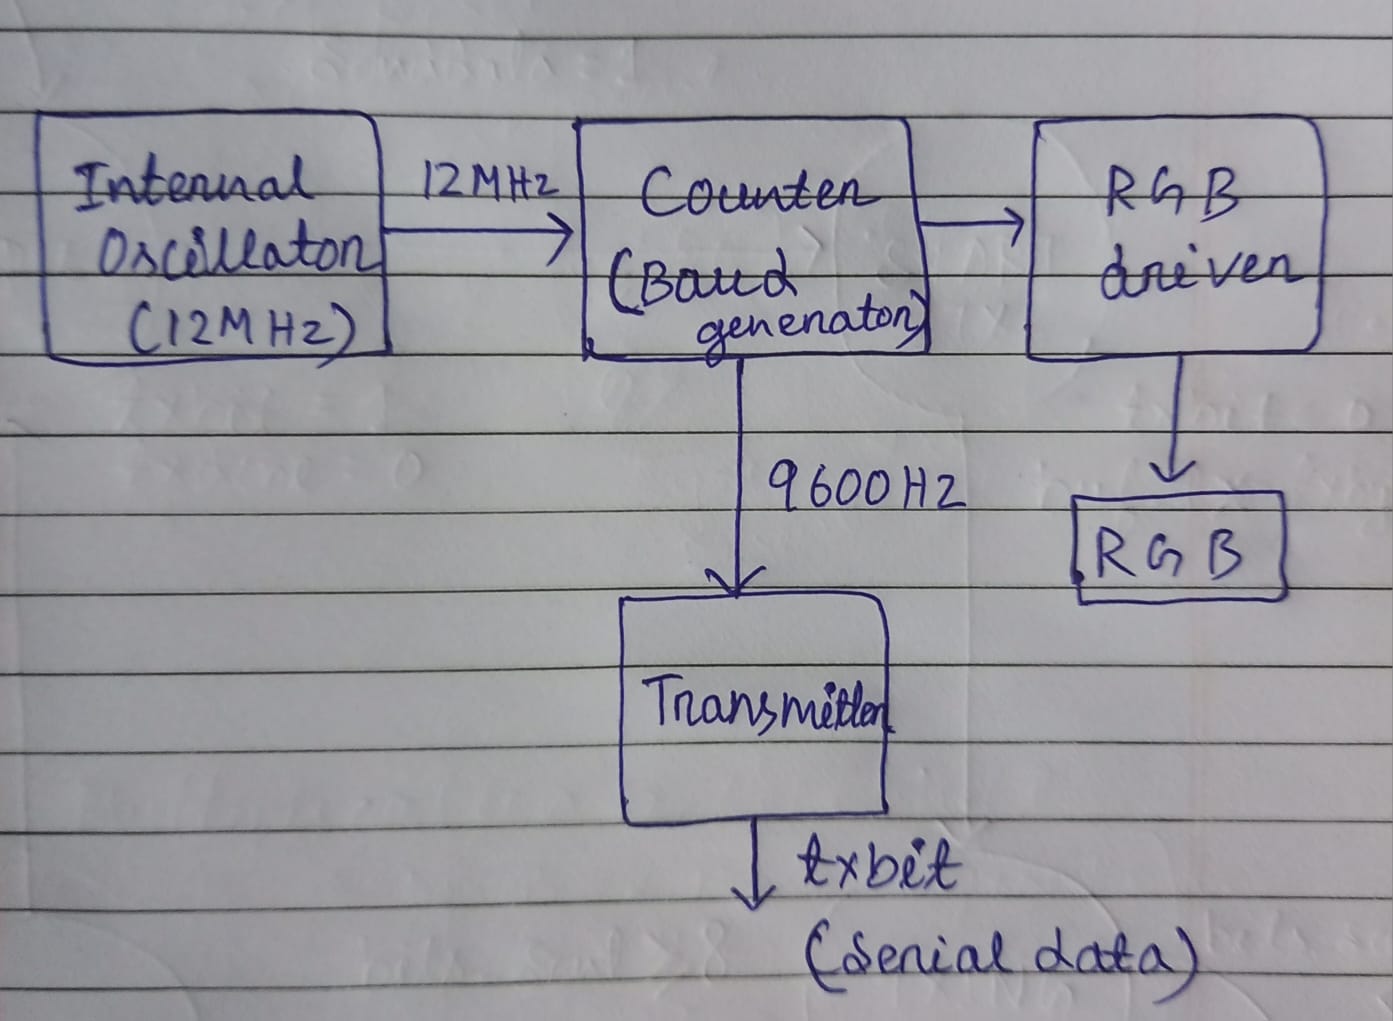 Internal
Oscillator
(12MHz)
12MHz
Counter
(Baud
generator)
RGB
driver
9600Hz
RGB
Transmitter
txbit
(serial data)